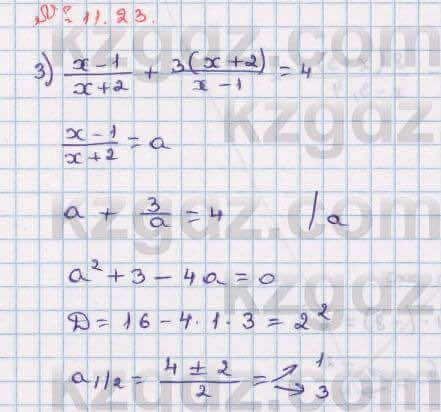 № 11.23.
3) \frac{x-1}{x+2} + \frac{3(x+2)}{x-1} = 4
\frac{x-1}{x+2} = a
a + \frac{3}{a} = 4 / a
a² + 3 - 4a = 0
D = 16 - 4 · 1 · 3 = 2²
a₁/₂ = \frac{4 ± 2}{2} = ↗ 1. ↘ 3
kzgdz
kzgdz
kzgdz
kzgdz